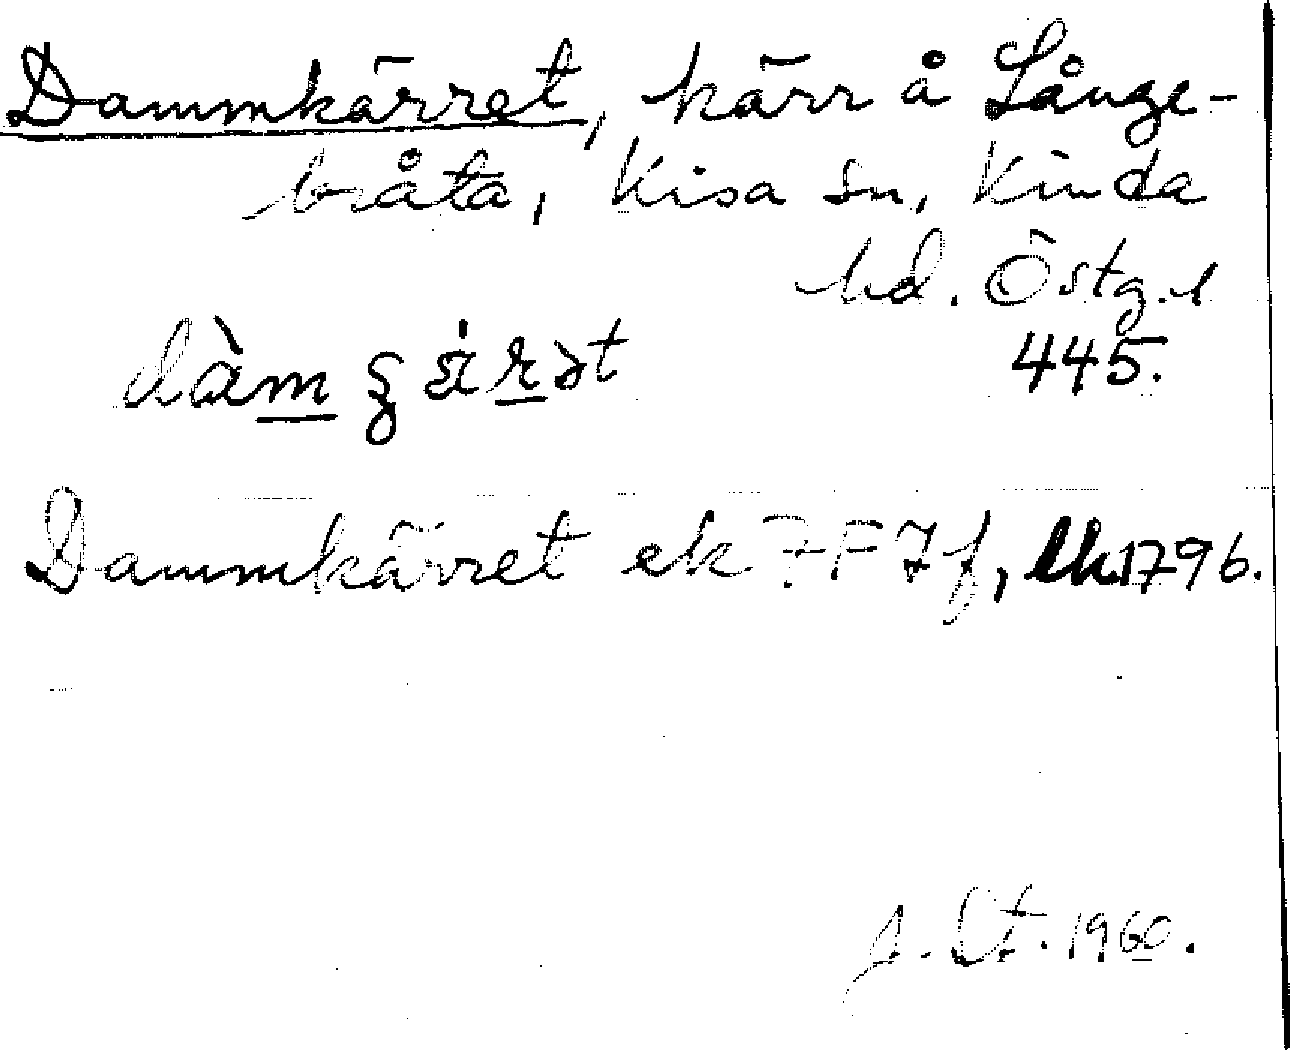 Dammkärret, kärr å Långe-
bråta, Kisa sn, Kinda
hd. Östg.l
dàm̲ʂä́r̲ət 445.
Dammkärret ek 7F7f, lk 1796.
1960.